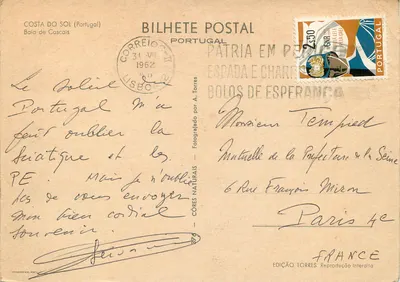 COSTA DO SOL (Portugal)
Baia de Cascais
BILHETE POSTAL
PORTUGAL
CORREIO
1962
LISBOA
PÁTRIA EM PE
BOLOS DE ESPERANÇA
2$50
PORTUGAL
Le soleil du
Portugal m'a
fait oublier la
Sciatique et les
PE. Mais je n'oublie
pas de vous envoyer
mon bien cordial
souvenir.
CÔRES NATURAIS - Fotografado por A. Torres
Monsieur Tempied
Mutuelle de la Préfecture de la Seine
6 Rue François Miron
Paris 4e
FRANCE
EDIÇÃO TORRES Reprodução Interdita